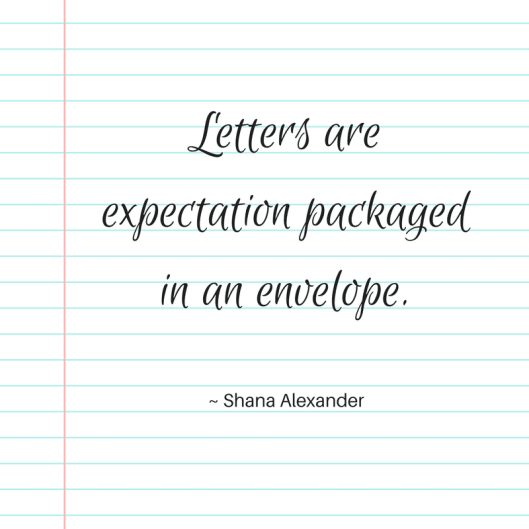 Letters are
expectation packaged
in an envelope.
~ Shana Alexander